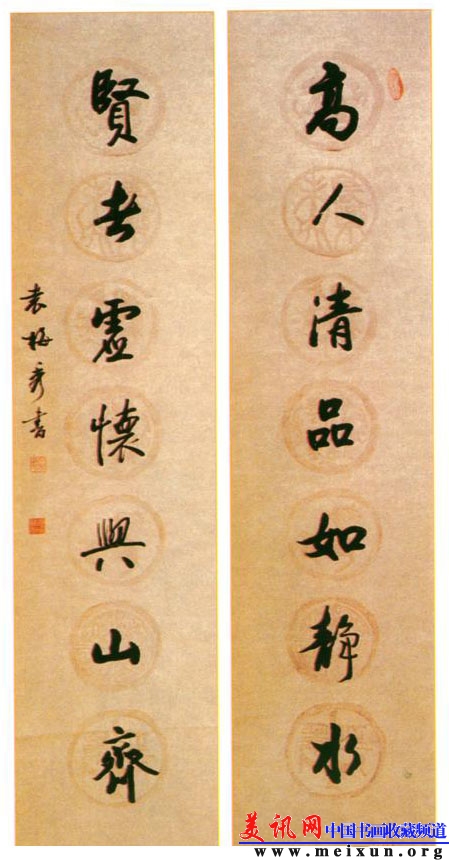 高人清品如静水
賢者虛懷與山齊
袁梅書
美讯网 中国书画收藏频道
www.meixun.org